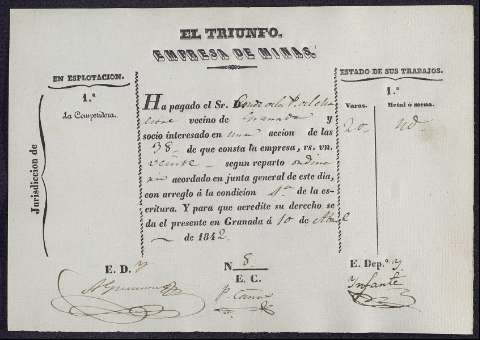 EL TRIUNFO.
EMPRESA DE MINAS.
EN ESPLOTACION.
1.ª
La Compondera.
Jurisdiccion de
Ha pagado el Sr. D. Conde de la P. de
vecino de Granada y
socio interesado en una accion de las
38 de que consta la empresa, rs. vn.
veinte segun reparto ordina
rio acordado en junta general de este dia,
con arreglo á la condicion 4.ª de la es-
critura. Y para que acredite su derecho se
da el presente en Granada á 10 de Abril
de 1842.
ESTADO DE SUS TRABAJOS.
1.ª
Varas.
Metal ó mena.
20.
E. D.
N 8
E. C.
E. Dep.º
Infante